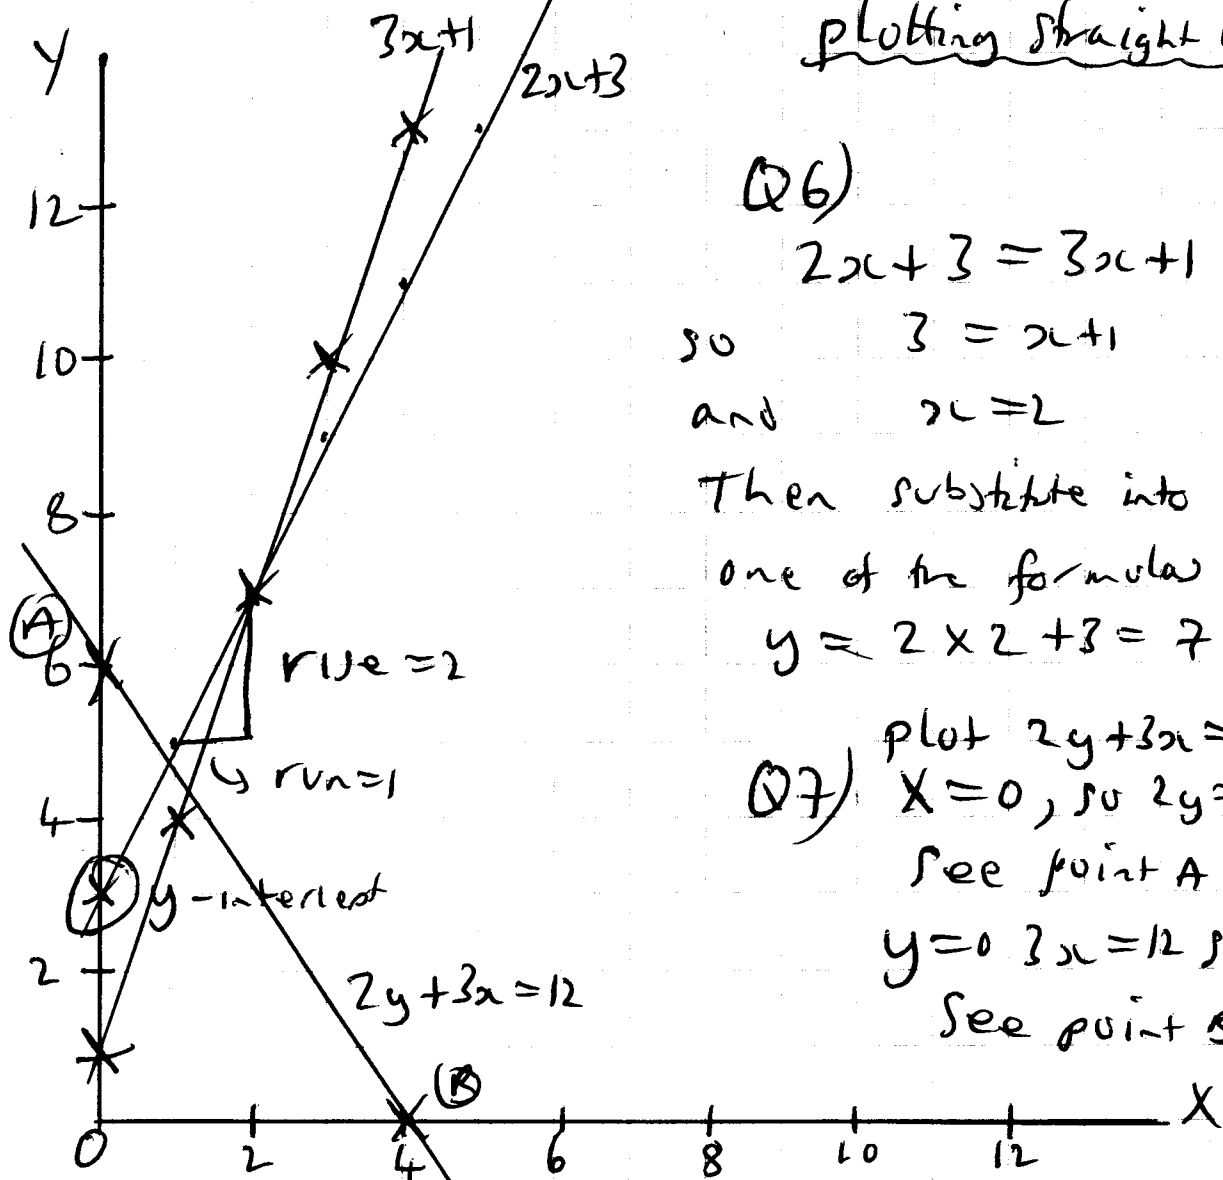 plotting straight
Y
3x+1
2x+3
12
10
8
A
6
4
2
0
2
4
6
8
10
12
X
rise = 2
run=1
y-intercept
2y+3x=12
B
Q6)
2x+3=3x+1
so 3 = x+1
and x=2
Then substitute into
one of the formulas
y = 2 x 2 +3 = 7
plot 2y+3x=
Q7) X=0, so 2y=
See point A
y=0 3x=12 s
See point B